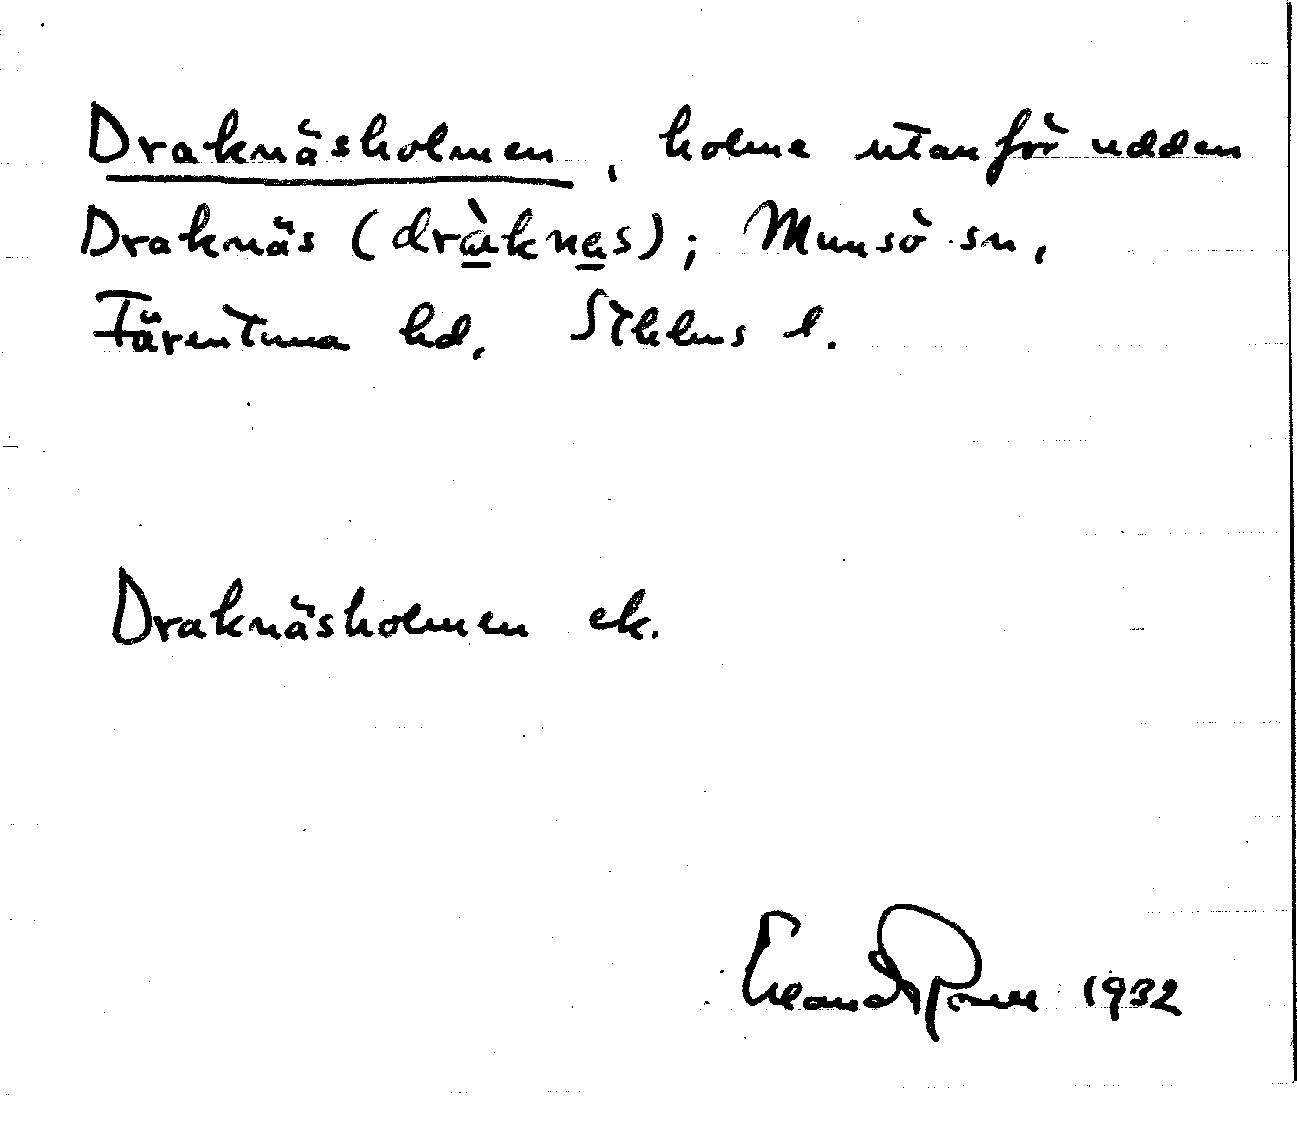 Draknäsholmen, holme utanför udden
Draknäs (dràknas); Munsö sn,
Färentuna hd, Sthlms l.
Draknäsholmen ek.
1932